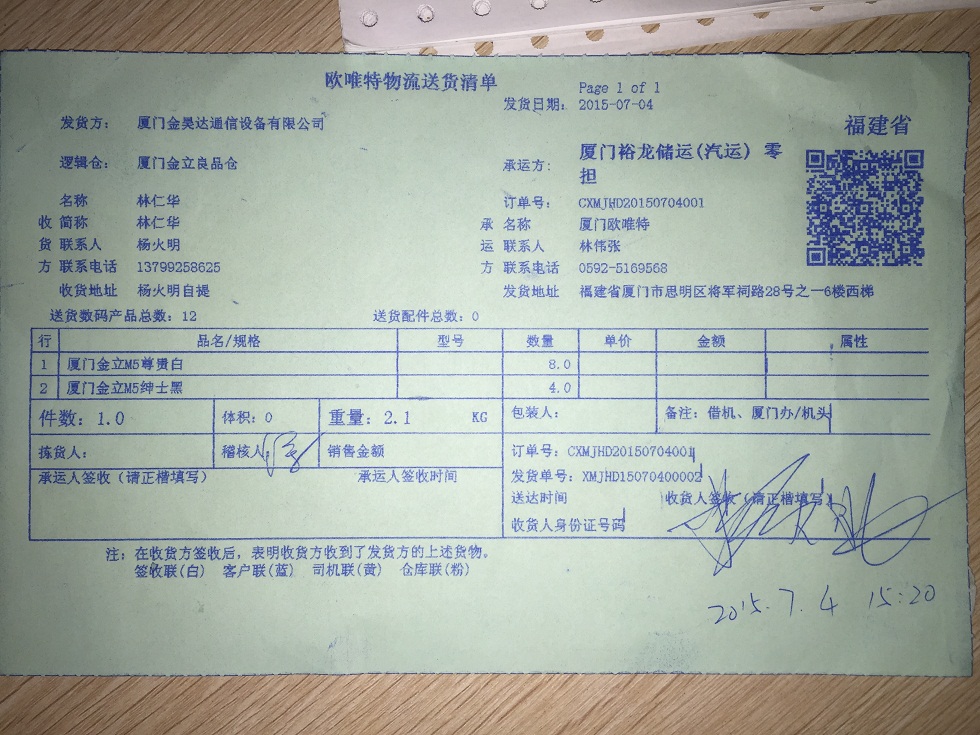 欧唯特物流送货清单
Page 1 of 1
发货日期: 2015-07-04
发货方: 厦门金昊达通信设备有限公司
福建省
逻辑仓: 厦门金立良品仓
承运方: 厦门裕龙储运(汽运) 零
担
名称 林仁华
订单号: CXMJHD20150704001
收 简称 林仁华
承 名称 厦门欧唯特
货 联系人 杨火明
运 联系人 林伟张
方 联系电话 13799258625
方 联系电话 0592-5169568
收货地址 杨火明自提
发货地址 福建省厦门市思明区将军祠路28号之一6楼西梯
送货数码产品总数: 12 送货配件总数: 0
行 品名/规格 型号 数量 单价 金额 属性
1 厦门金立M5尊贵白 8.0
2 厦门金立M5绅士黑 4.0
件数: 1.0 体积: 0 重量: 2.1 KG 包装人: 备注: 借机、厦门办/机头
拣货人: 稽核人 销售金额
订单号: CXMJHD20150704001
承运人签收 (请正楷填写) 承运人签收时间
发货单号: XMJHD15070400002
送达时间 收货人签收 (请正楷填写)
收货人身份证号码
注: 在收货方签收后, 表明收货方收到了发货方的上述货物。
签收联(白) 客户联(蓝) 司机联(黄) 仓库联(粉)
2015.7.4 15:20